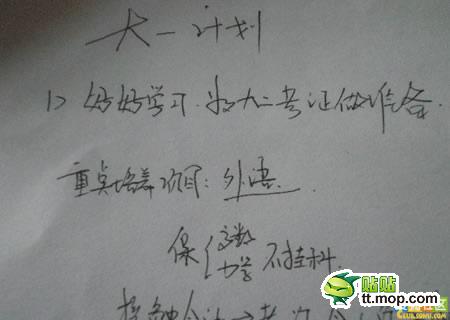 大一计划
1> 好好学习，为大二考证做准备.
重点培养项目：外语.
保{高数 力学 不挂科.
贴贴
tt.mop.com
CLUB.SOHU.COM